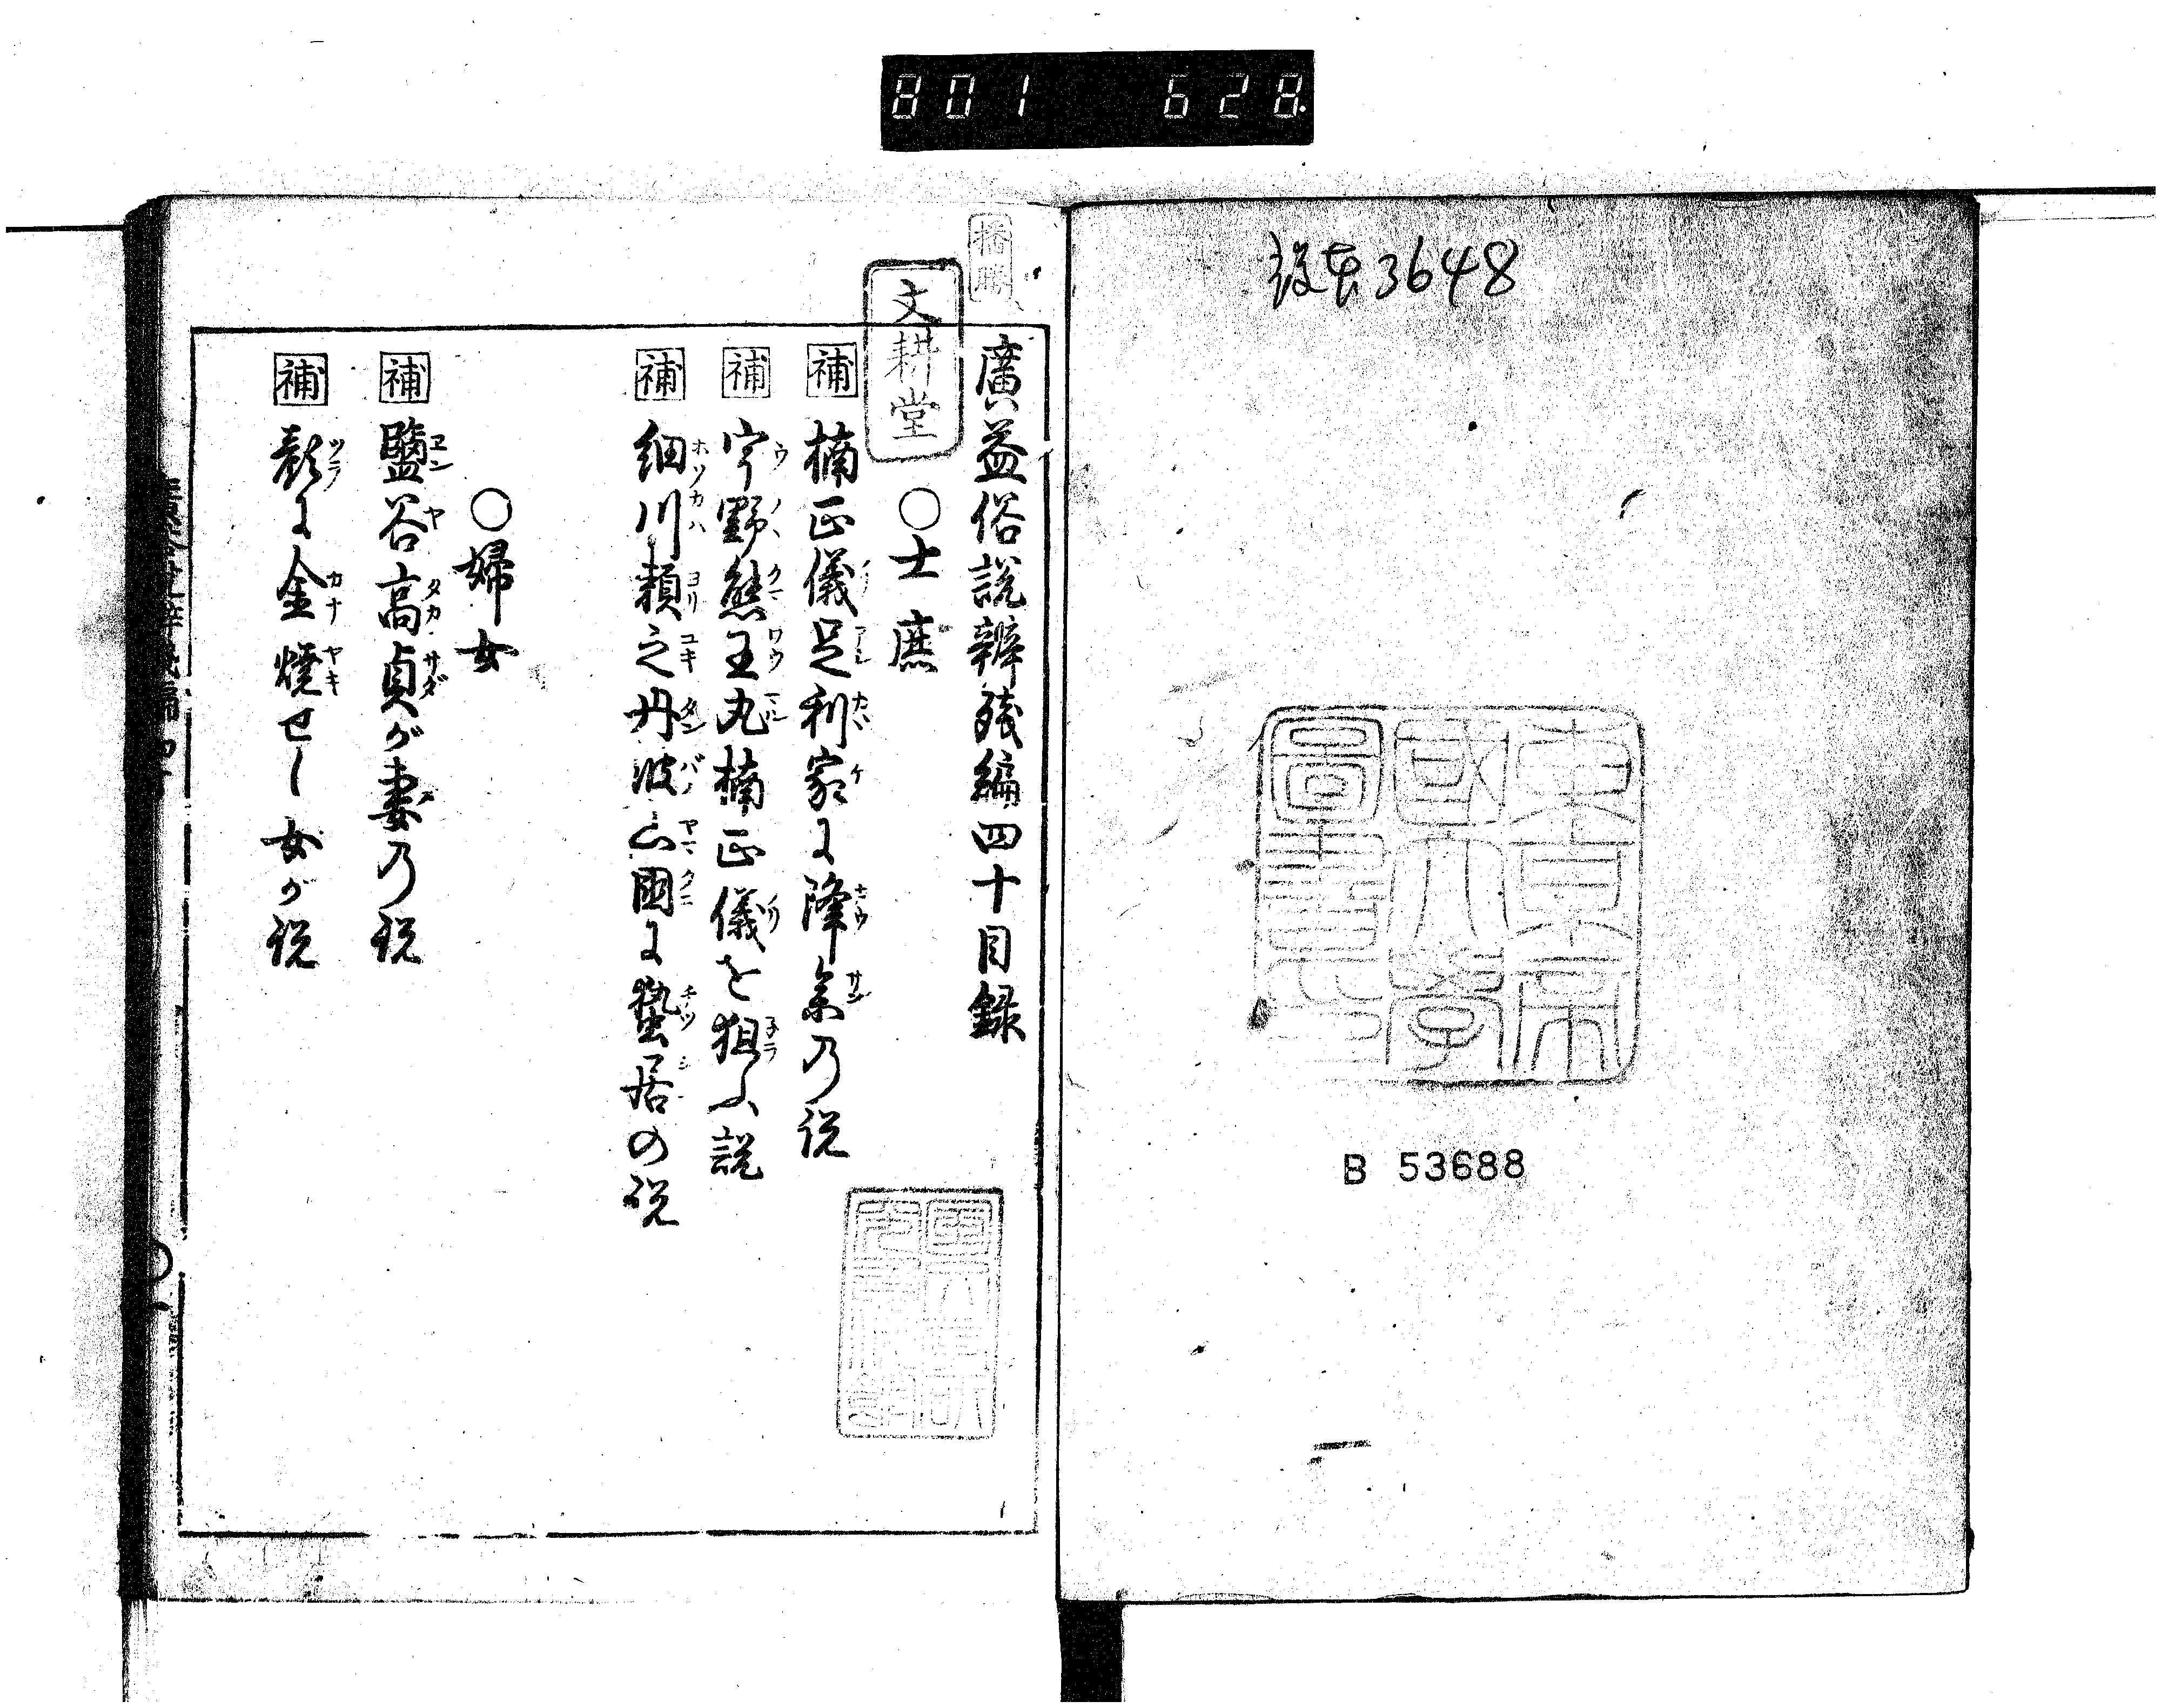 801 628
3648
東京帝
國大學
圖書印
B 53688
廣益俗説辨殘編四十目録
文耕堂
○士庶
補 楠正儀足利家に降參の説
補 宇野熊王丸楠正儀を狙ふ説
補 細川頼之丹波山國に蟄居の説
○婦女
補 鹽谷高貞が妻の説
補 顔に金燒せし女が説